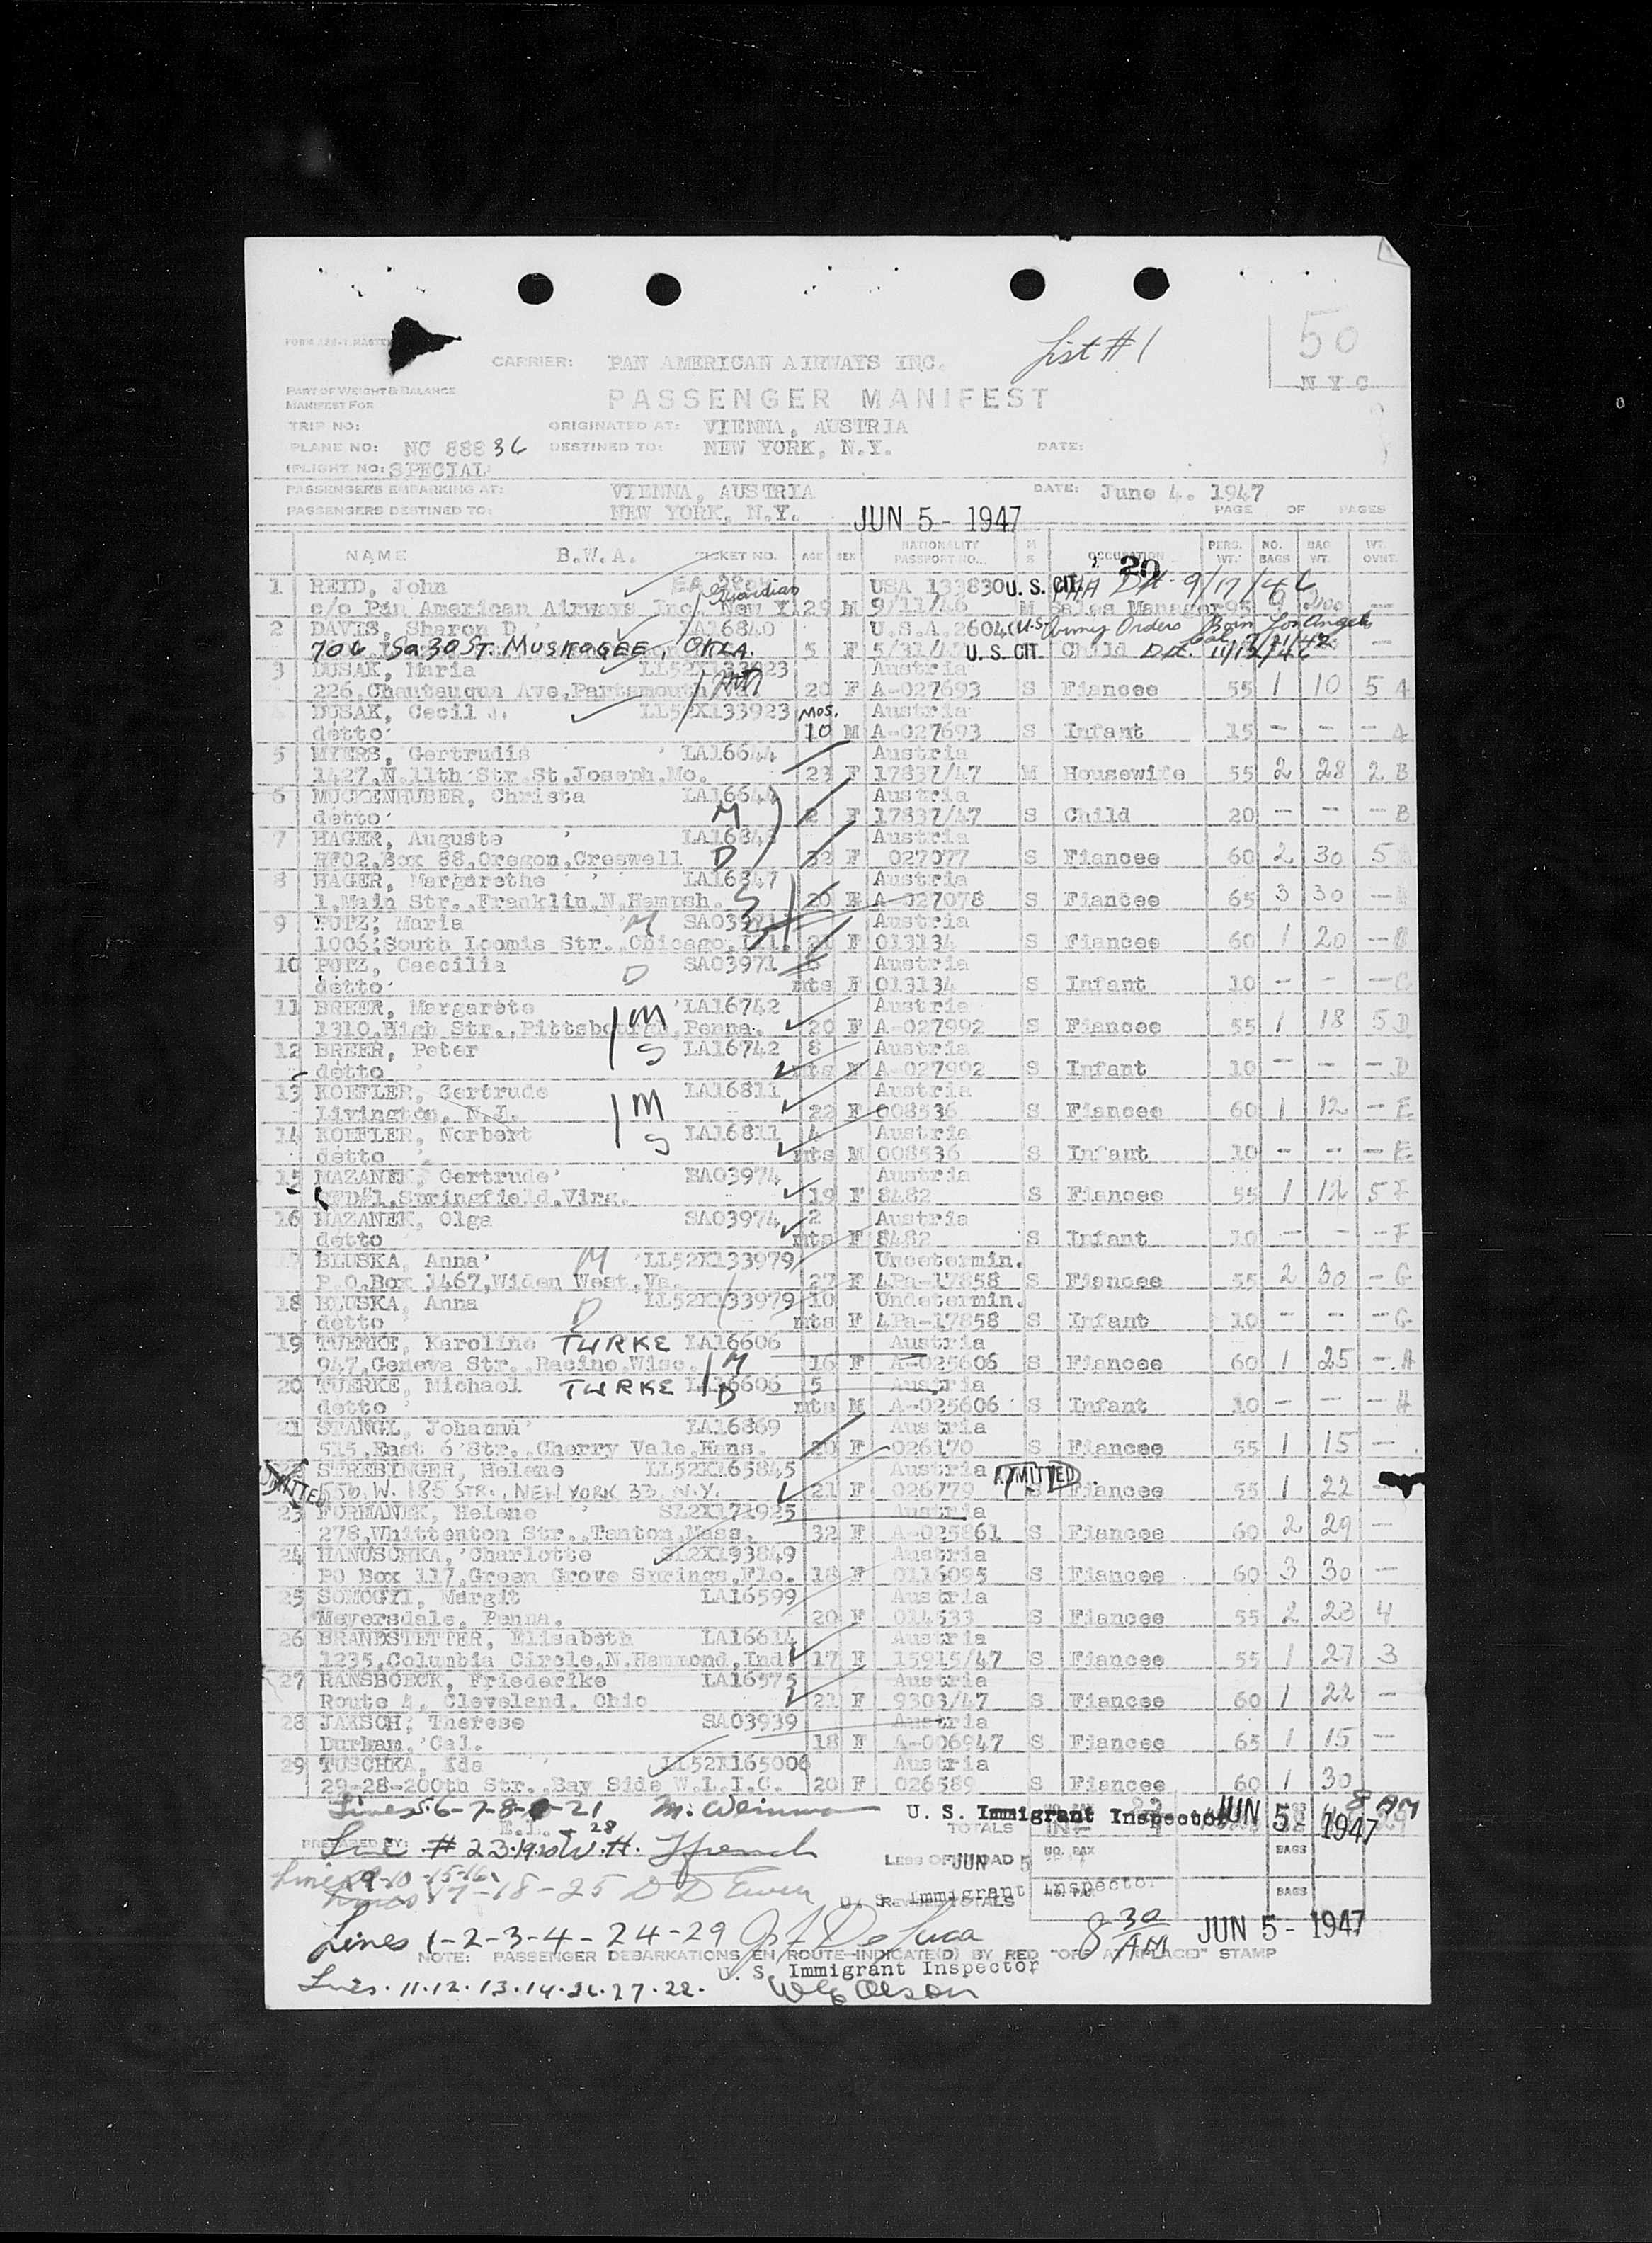 List #1
50
N Y C
CARRIER: PAN AMERICAN AIRWAYS INC.
PART OF WEIGHT & BALANCE
MANIFEST FOR
PASSENGER MANIFEST
TRIP NO: ORIGINATED AT: VIENNA, AUSTRIA
PLANE NO: NC 88836 DESTINED TO: NEW YORK, N.Y. DATE:
(FLIGHT NO: SPECIAL
PASSENGERS EMBARKING AT: VIENNA, AUSTRIA DATE: June 4. 1947
PASSENGERS DESTINED TO: NEW YORK, N.Y. JUN 5 - 1947 PAGE OF PAGES
NAME B.W.A. TICKET NO. AGE SEX NATIONALITY PASSPORT NO. M S OCCUPATION PERS. WT. NO. BAGS BAG WT. WT. OVNT.
1 REID, John Guardian USA 133830 U. S. CIT. 9/17/46
c/o Pan American Airways Inc New Y. 29 M 9/11/46 M Sales Manager 95
2 DAVIS, Sharon D. LA16840 U.S.A. 2604 Army Orders Born Los Angeles
706 So 30 ST. MUSKOGEE, OKLA. 5 F U. S. CIT. Child
3 DUSAK, Maria LL52X133923 Austria
226, Chautauqua Ave, Partsmouth 20 F A-027693 S Fiancee 55 1 10 5 A
DUSAK, Cecil J. LL52X133923 MOS. Austria
detto 10 M A-027693 S Infant 15 - - - A
5 MYERS, Gertrudis LA16644 Austria
1427, N. 11th Str. St. Joseph, Mo. 23 F 17837/47 M Housewife 55 2 28 2 B
6 MUCKENHUBER, Christa LA16644 Austria
detto M 2 F 17837/47 S Child 20 - - - B
7 HAGER, Auguste LA16848 Austria
RFD2, Box 88, Oregon, Creswell D 32 F 027077 S Fiancee 60 2 30 5
8 HAGER, Margarethe LA16847 Austria
1, Main Str., Franklin, N. Hampsh. S 20 F A 027078 S Fiancee 65 3 30 -
9 POTZ, Maria M SA03971 Austria
1006, South Loomis Str., Chicago, Ill. 21 F 013134 S Fiancee 60 1 20 -
10 POTZ, Caecilia D SA03971 Austria
detto mts F 013134 S Infant 10 - - - C
11 BREER, Margarete M LA16742 Austria
1310, High Str., Pittsbourgh, Penna. 20 F A-027992 S Fiancee 55 1 18 5 D
12 BREER, Peter S LA16742 8 Austria
detto mts M A-027992 S Infant 10 - - - D
13 KOIFLER, Gertrude M LA16811 Austria
Livington, N.J. 22 F 008536 S Fiancee 60 1 12 - E
14 KOIFLER, Norbert S LA16811 4 Austria
detto mts M 008536 S Infant 10 - - - E
15 MAZANEK, Gertrude SA03974 Austria
Springfield, Virg. 19 F 8482 S Fiancee 55 1 12 5 F
16 MAZANEK, Olga SA03974 2 Austria
detto mts F 8482 S Infant 10 - - - F
BLUSKA, Anna M LL52X133979 Undetermin.
P.O. Box 1467, Widen West, Va. 27 F 4Pa-17858 S Fiancee 55 2 30 - G
18 BLUSKA, Anna D LL52X133979 10 Undetermin.
detto mts F 4Pa-17858 S Infant 10 - - - G
19 TUERKE, Karoline TURKE LA16606 Austria
947, Geneva Str., Racine, Wisc. M 16 F A-025606 S Fiancee 60 1 25 - H
20 TUERKE, Michael TURKE LA16606 5 Austria
detto D mts M A-025606 S Infant 10 - - - H
21 STANGL, Johanna LA16869 Austria
515, East 6 Str., Cherry Vale, Kans. 20 F 026170 S Fiancee 55 1 15 -
STREBINGER, Helene LL52X165845 Austria ADMITTED
ADMITTED 556, W. 185 STR., NEW YORK 33, N.Y. 21 F 026779 S Fiancee 55 1 22 -
23 FORMANEK, Helene SL2X171925 Austria
278, Whittenton Str., Tanton, Mass. 32 F A-025861 S Fiancee 60 2 29 -
24 HANUSCHKA, Charlotte SL2X193849 Austria
PO Box 117, Green Grove Springs, Flo. 18 F 0116095 S Fiancee 60 3 30 -
25 SOMOGYI, Margit LA16599 Austria
Meyersdale, Penna. 20 F 014533 S Fiancee 55 2 23 4
26 BRANDSTETTER, Elisabeth LA16614 Austria
1235, Columbia Circle, N. Hammond, Ind. 17 F 15915/47 S Fiancee 55 1 27 3
27 RANSBOECK, Friederike LA16575 Austria
Route 4, Cleveland, Ohio 21 F 9303/47 S Fiancee 60 1 22 -
28 JAKSCH, Therese SA03939 Austria
Durham, Cal. 18 F A-006947 S Fiancee 65 1 15 -
29 TUSCHKA, Ida LL52X165006 Austria
29-28-200th Str., Bay Side W.L.I.C. 20 F 026589 S Fiancee 60 1 30
Lines 5-6-7-8- -21 M. Weinman U. S. Immigrant Inspector JUN 5 - 1947 8 AM
PREPARED BY: TOTALS
Line # 23-19-20 - 28 W. H. French
LESS OFFLOAD NO. PAX BAGS
JUN 5
Lines 9-10-15-16
17-18-25 D D Ewen U. S. Immigrant Inspector
REVISED TOTALS NO. PAX BAGS
Lines 1-2-3-4-24-29 J. F. De Luca 8 30 AM JUN 5 - 1947
NOTE: PASSENGER DEBARKATIONS EN ROUTE INDICATE(D) BY RED "OFF AT (PLACE)" STAMP
U. S. Immigrant Inspector
Lines. 11.12.13.14.26.27.22. Olson